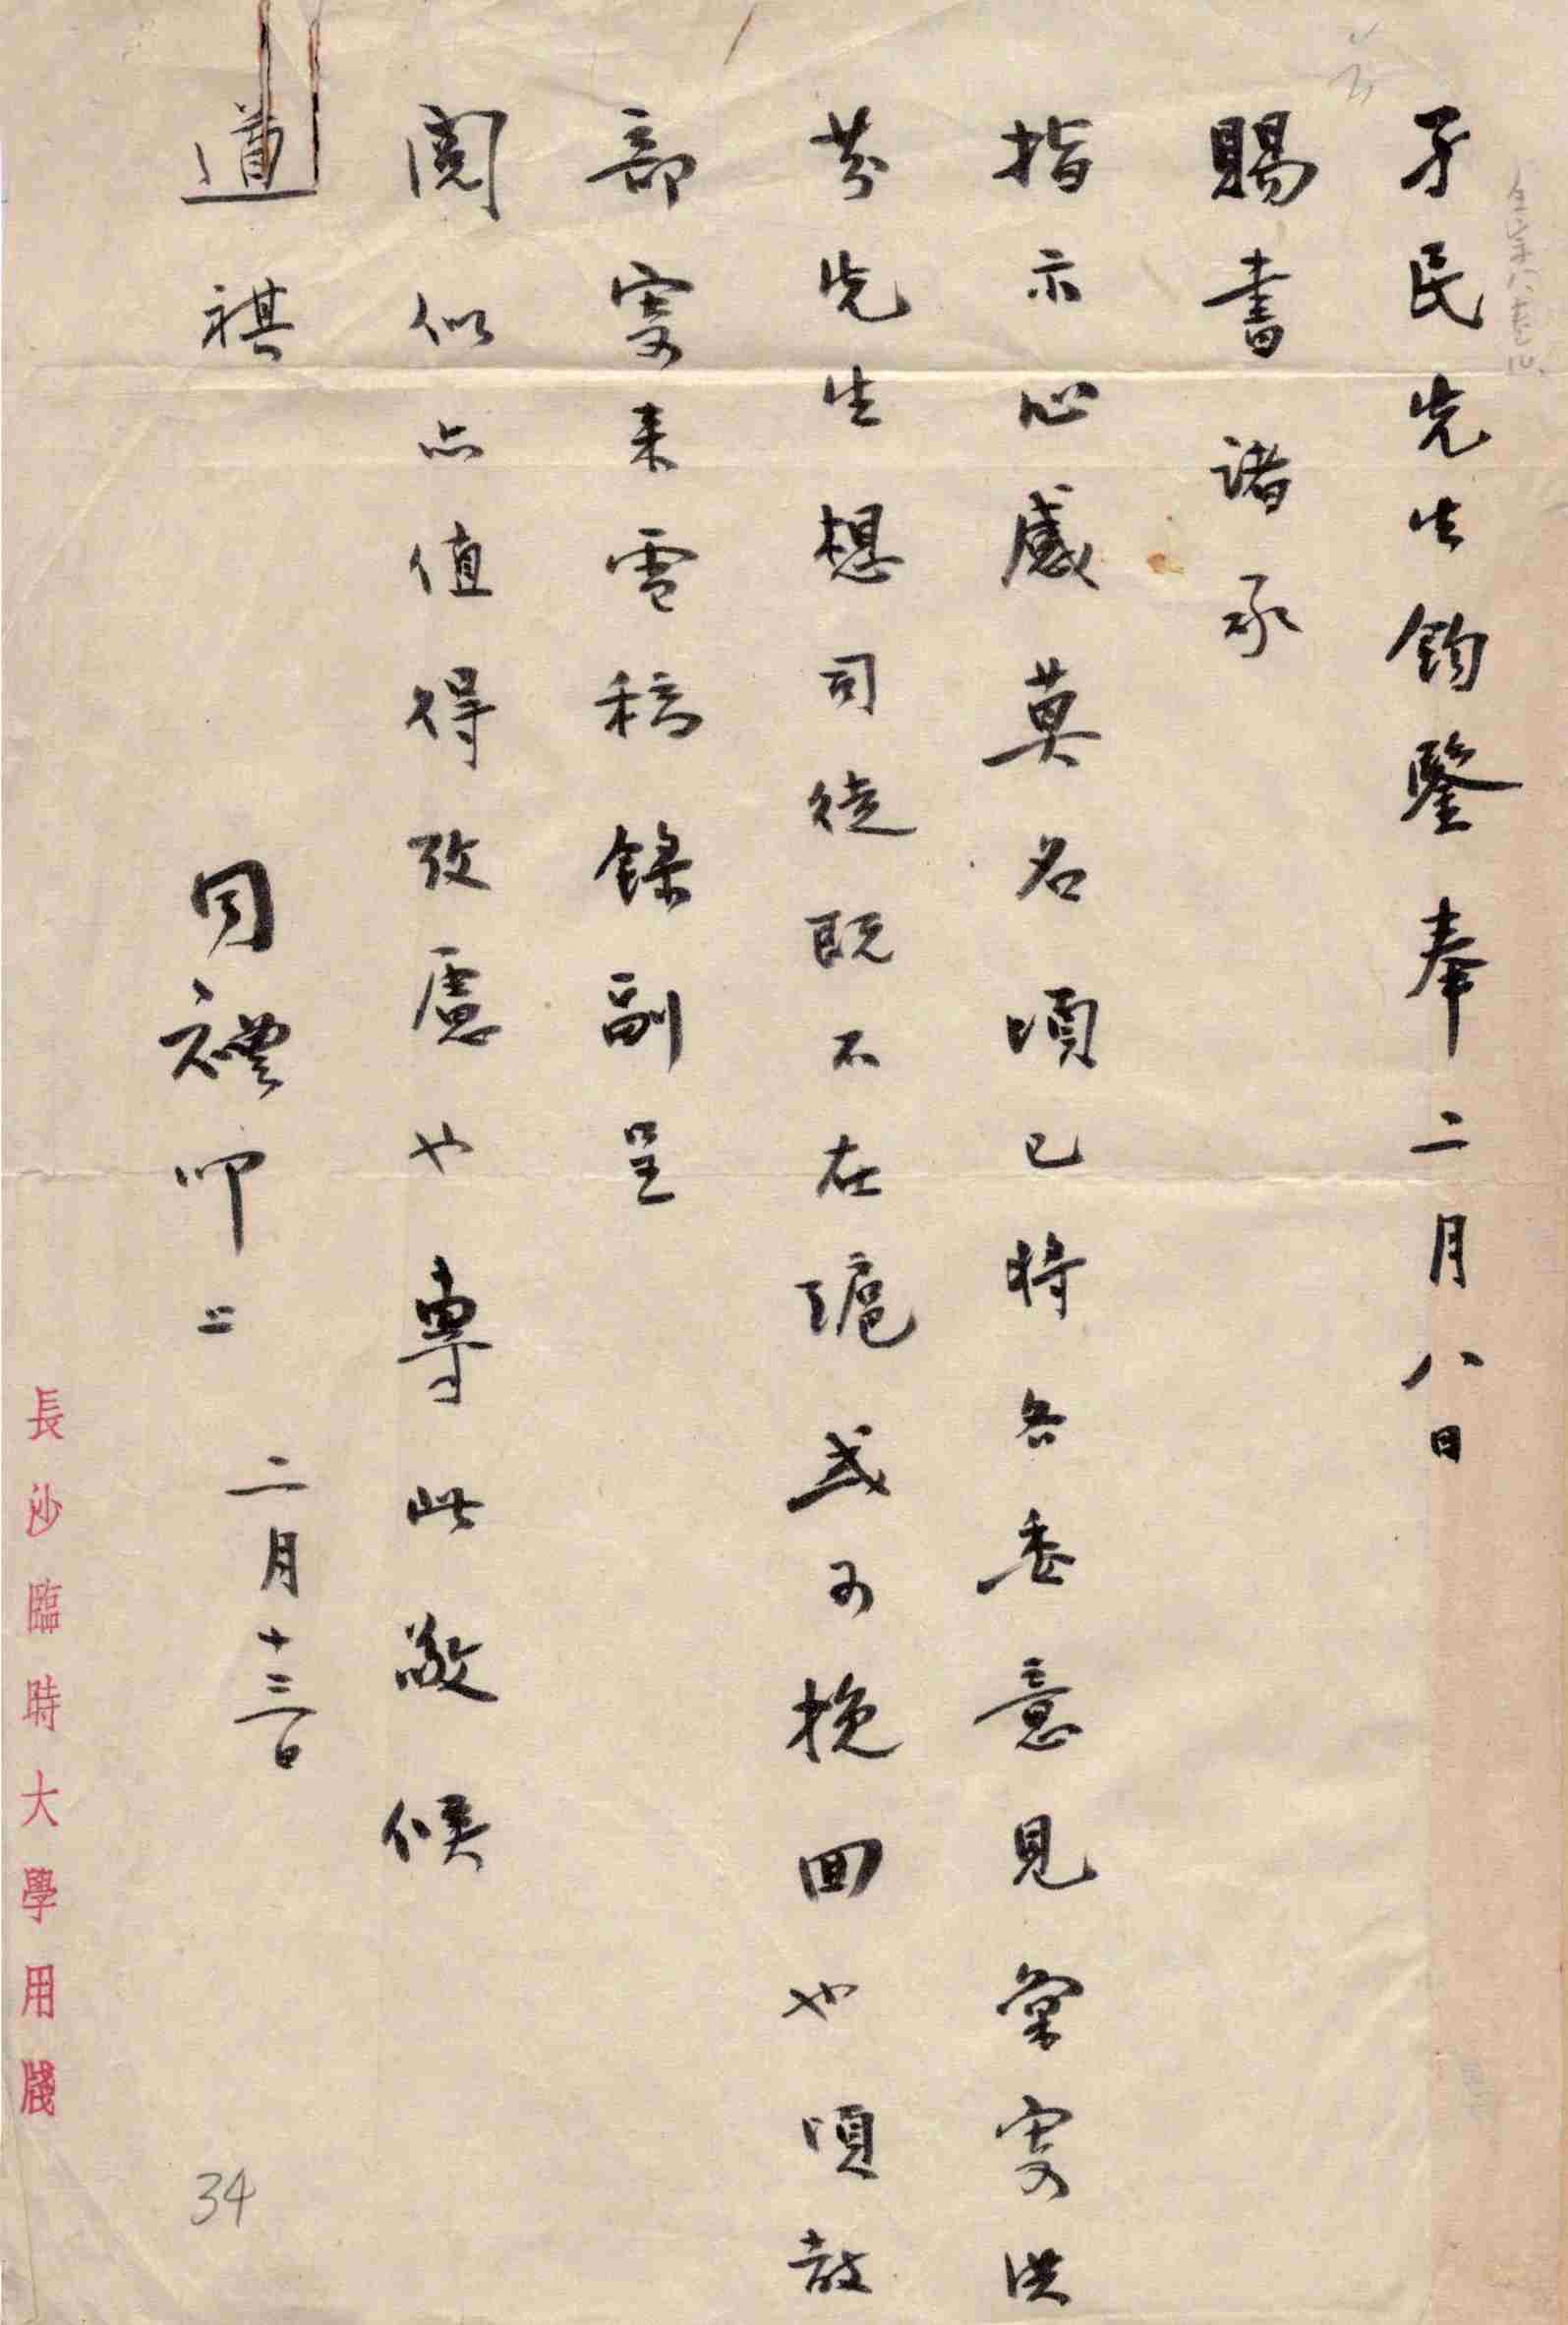 孑民先生鈞鑒奉二月八日
賜書諸承
指示心感莫名頃已將各委意見彙寄洪
芬先生想司徒既不在滬或可挽回也頃教
部寄來電稿錄副呈
閱似亦值得攷慮也專此敬候
道祺
同禮叩上 二月十三日
長沙臨時大學用牋
34